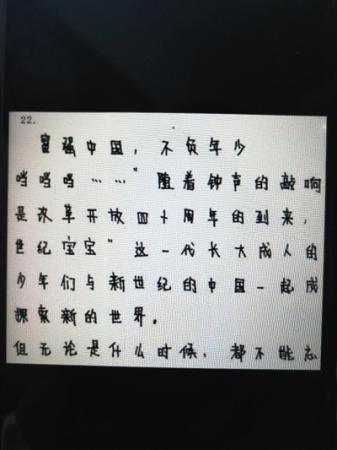 22.
富强中国,不负年少
当当当……"随着钟声的敲响
是改革开放四十周年的到来,
世纪宝宝"这一代长大成人的
少年们与新世纪的中国一起成
探索新的世界。
但无论是什么时候,都不能忘